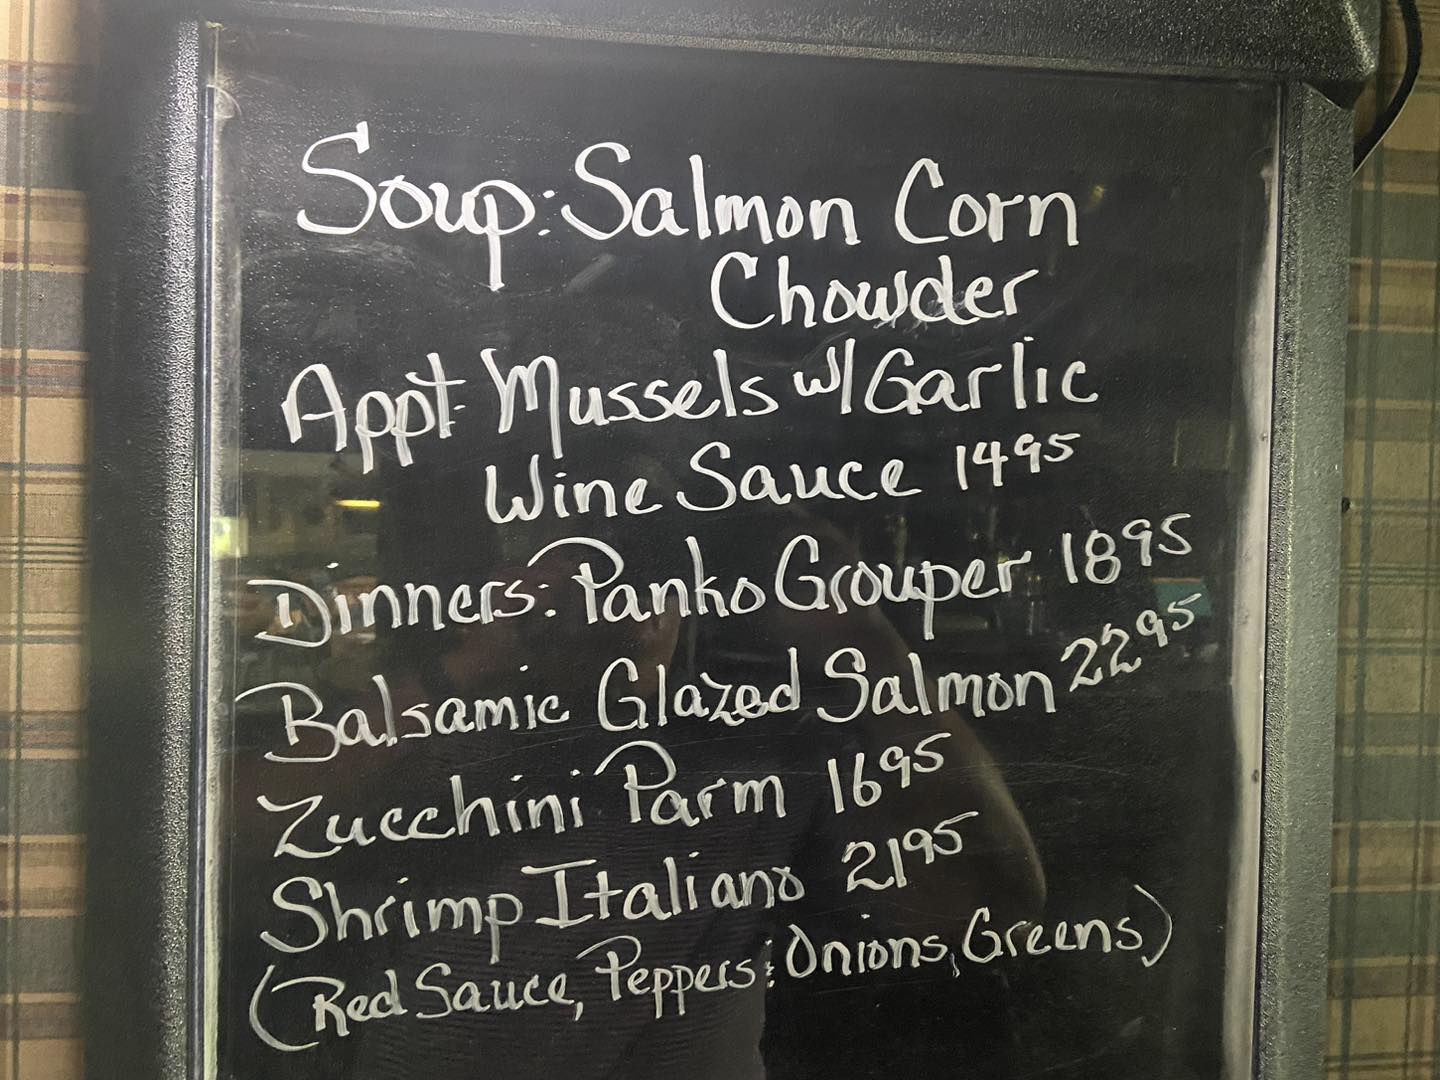 Soup: Salmon Corn
Chowder
Appt Mussels w/ Garlic
Wine Sauce 1495
Dinners: Panko Grouper 1895
Balsamic Glazed Salmon 2295
Zucchini Parm 1695
Shrimp Italiano 2195
(Red Sauce, Peppers: Onions, Greens)